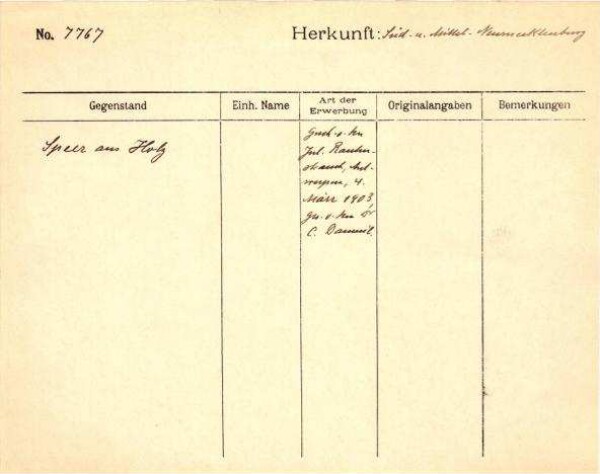 No. 7767 Herkunft: Süd- u. Mittel-Neumecklenburg
Gegenstand Einh. Name Art der Erwerbung Originalangaben Bemerkungen
Speer aus Holz
Gesch. v. Hn
Jul. Rauten-
strauch, Ant-
werpen, 4.
März 1903,
ges. v. Hn Dr
C. Dammil